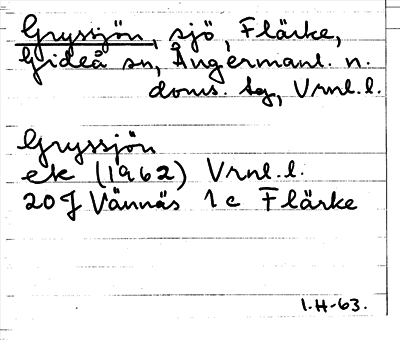 Gryssjön, sjö, Flärke,
Gideå sn, Ångermanl. n.
doms. sg, Vrnl. l.
Gryssjön
ek (1962) Vrnl. l.
20 J Vännäs 1 c Flärke
1.H-63.